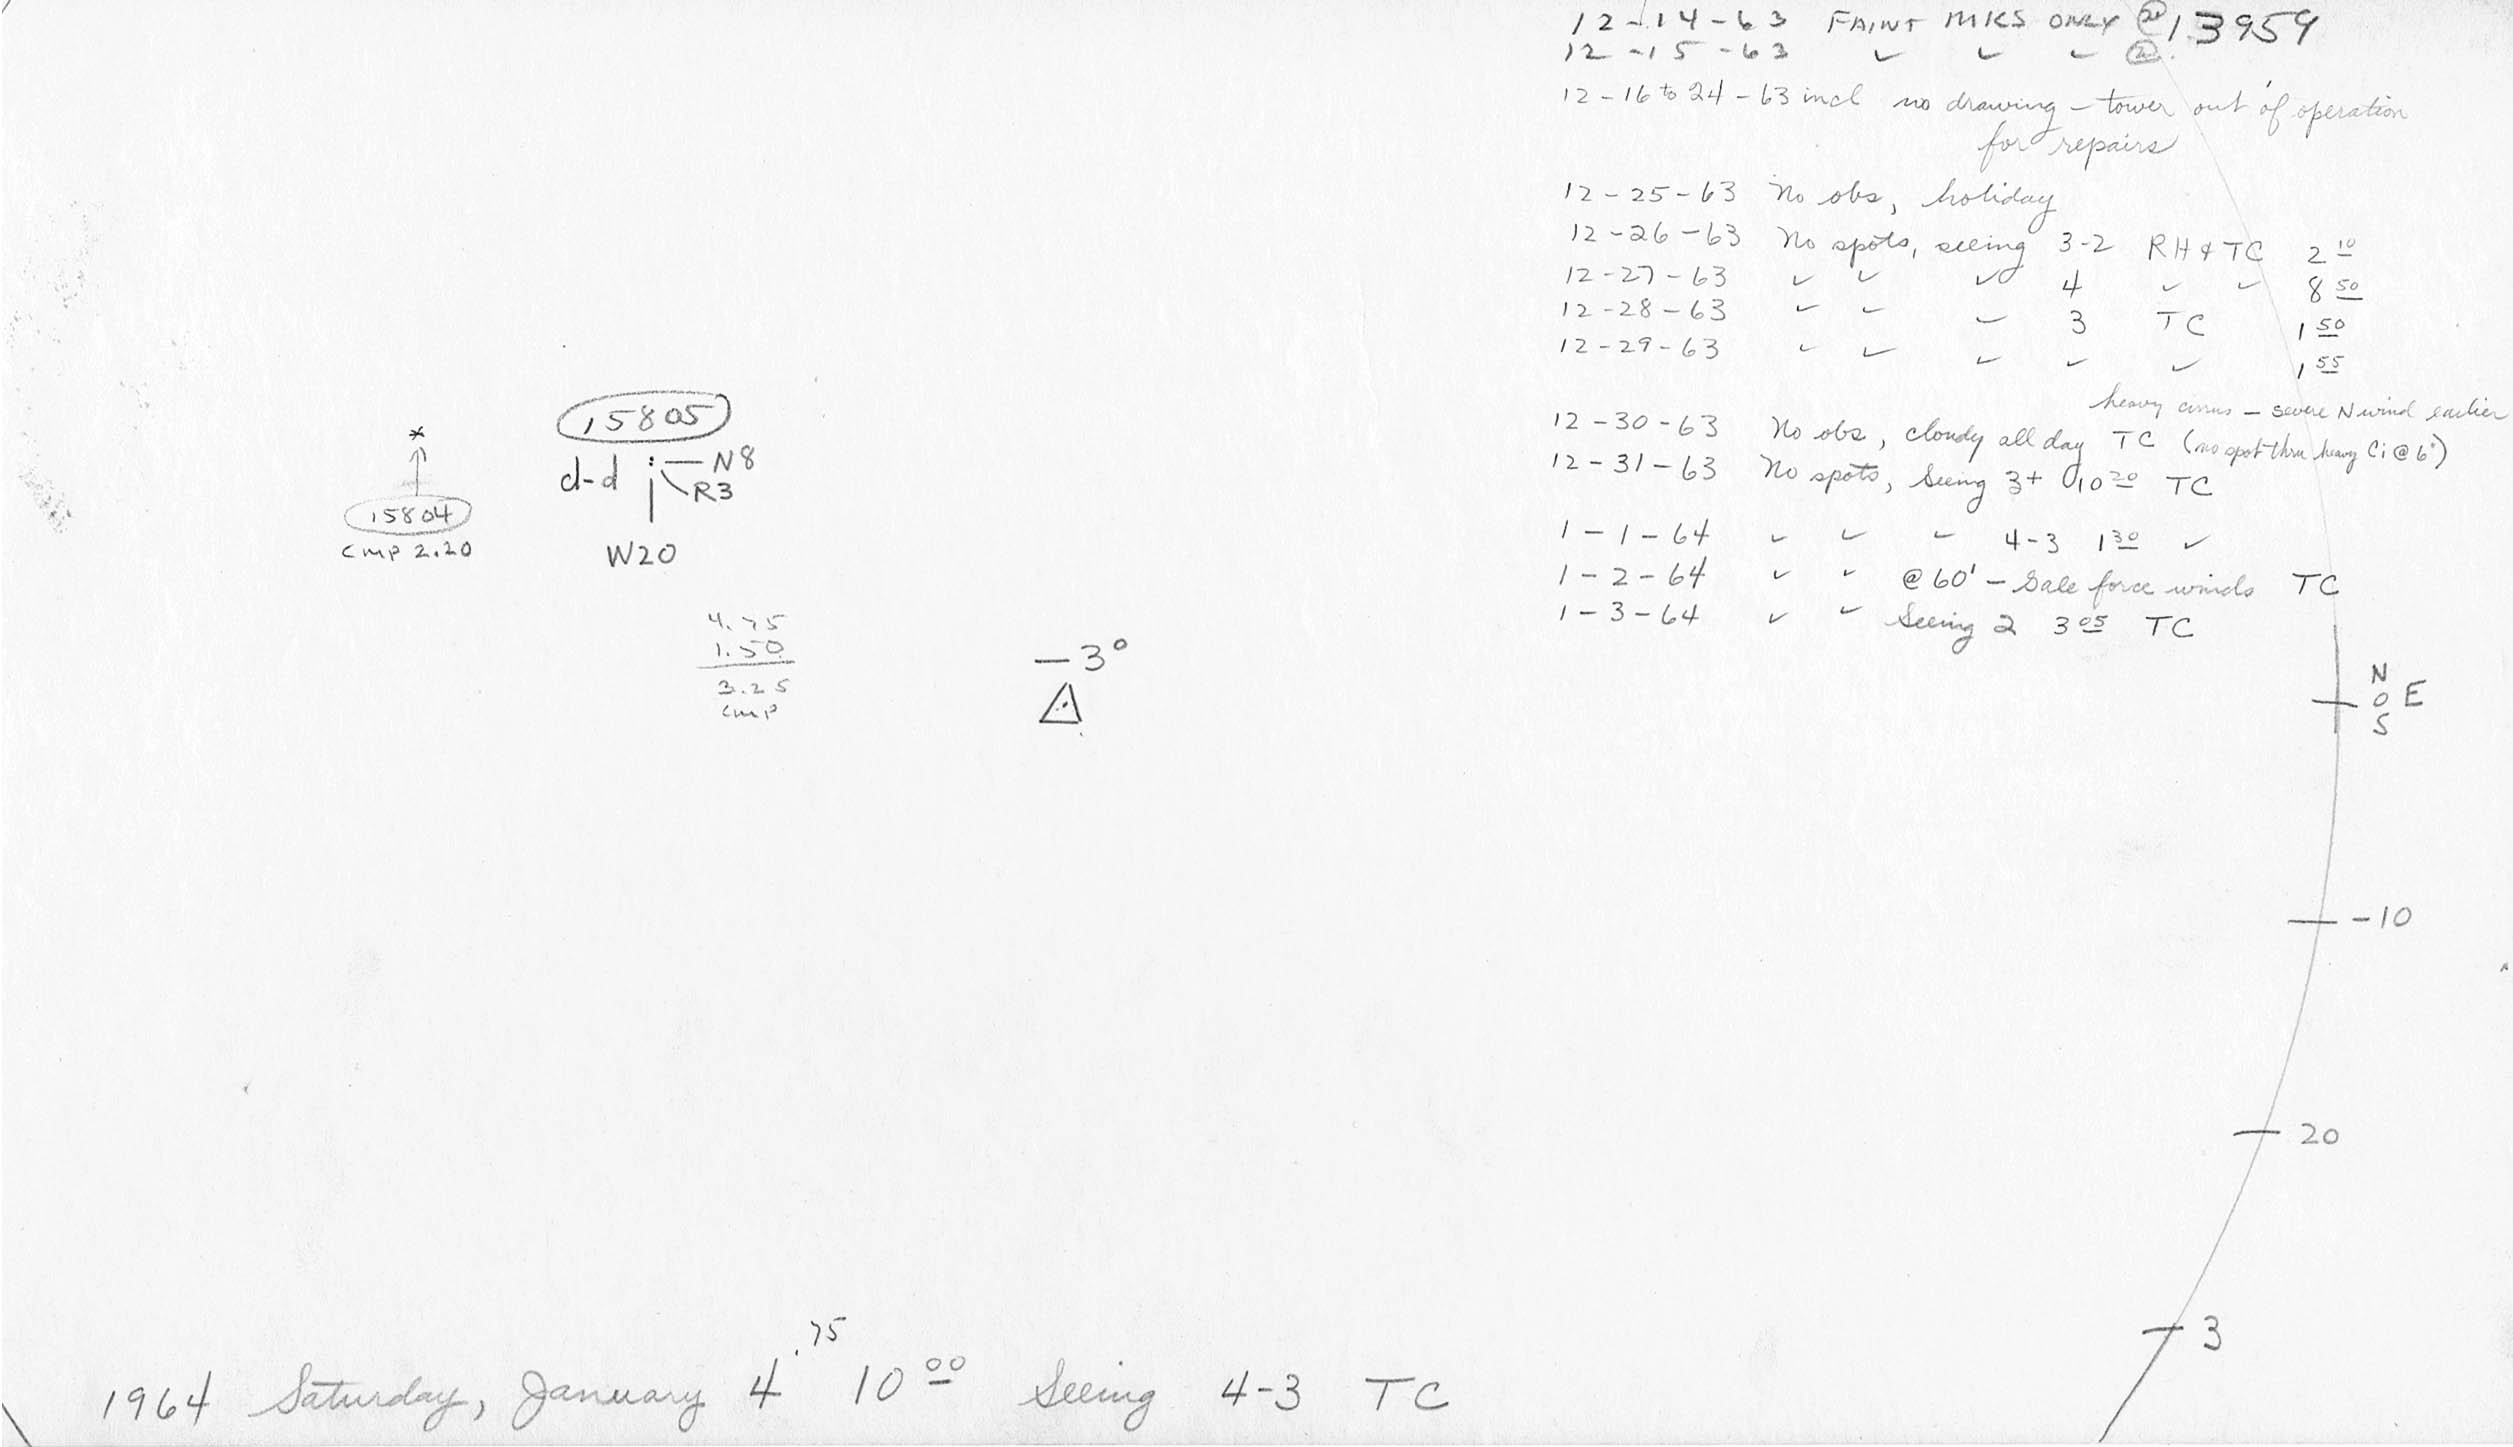 12-14-63 FAINT MKS ONLY @ 13959
12-15-63 ✓ ✓ ✓
12-16 to 24-63 incl no drawing - tower out of operation
for repairs
12-25-63 No obs, holiday
12-26-63 No spots, seeing 3-2 RH & TC 2 10
12-27-63 ✓ ✓ ✓ 4 ✓ ✓ 8 50
12-28-63 ✓ ✓ ✓ 3 TC 1 50
12-29-63 ✓ ✓ ✓ ✓ ✓ 1 55
heavy cirrus - severe N wind earlier
12-30-63 No obs, cloudy all day TC (no spot thru heavy Ci @ 6")
12-31-63 No spots, Seeing 3+ 10 20 TC
1-1-64 ✓ ✓ ✓ 4-3 1 30 ✓
1-2-64 ✓ ✓ @ 60' - Gale force winds TC
1-3-64 ✓ ✓ Seeing 2 3 05 TC
15805
d-d N8
R3
W20
15804
CMP 2.20
4.75
1.50
3.25
CMP
-3°
N
0 E
S
-10
20
3
.75
1964 Saturday, January 4 10 00 Seeing 4-3 TC